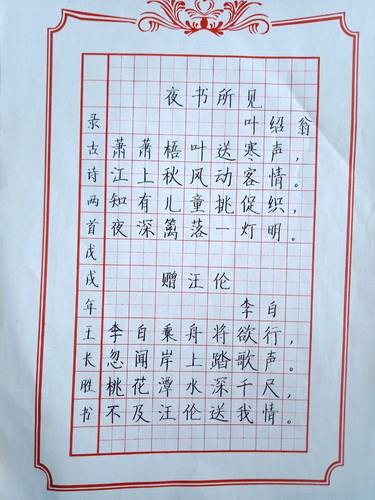 夜书所见
叶绍翁
萧萧梧叶送寒声，
江上秋风动客情。
知有儿童挑促织，
夜深篱落一灯明。
赠汪伦
李白
李白乘舟将欲行，
忽闻岸上踏歌声。
桃花潭水深千尺，
不及汪伦送我情。
录古诗两首戊戌年王长胜书